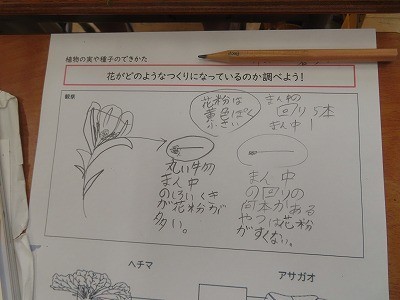 植物の実や種子のできかた
花がどのようなつくりになっているのか調べよう!
観察
花粉は
黄色ぽく
小さい
まん中の
回り5本
まん中1
丸い物
まん中
のしろいくき
が花粉が
多い。
まん中
の回りの
何本かある
やつは花粉
がすくない。
ヘチマ
アサガオ